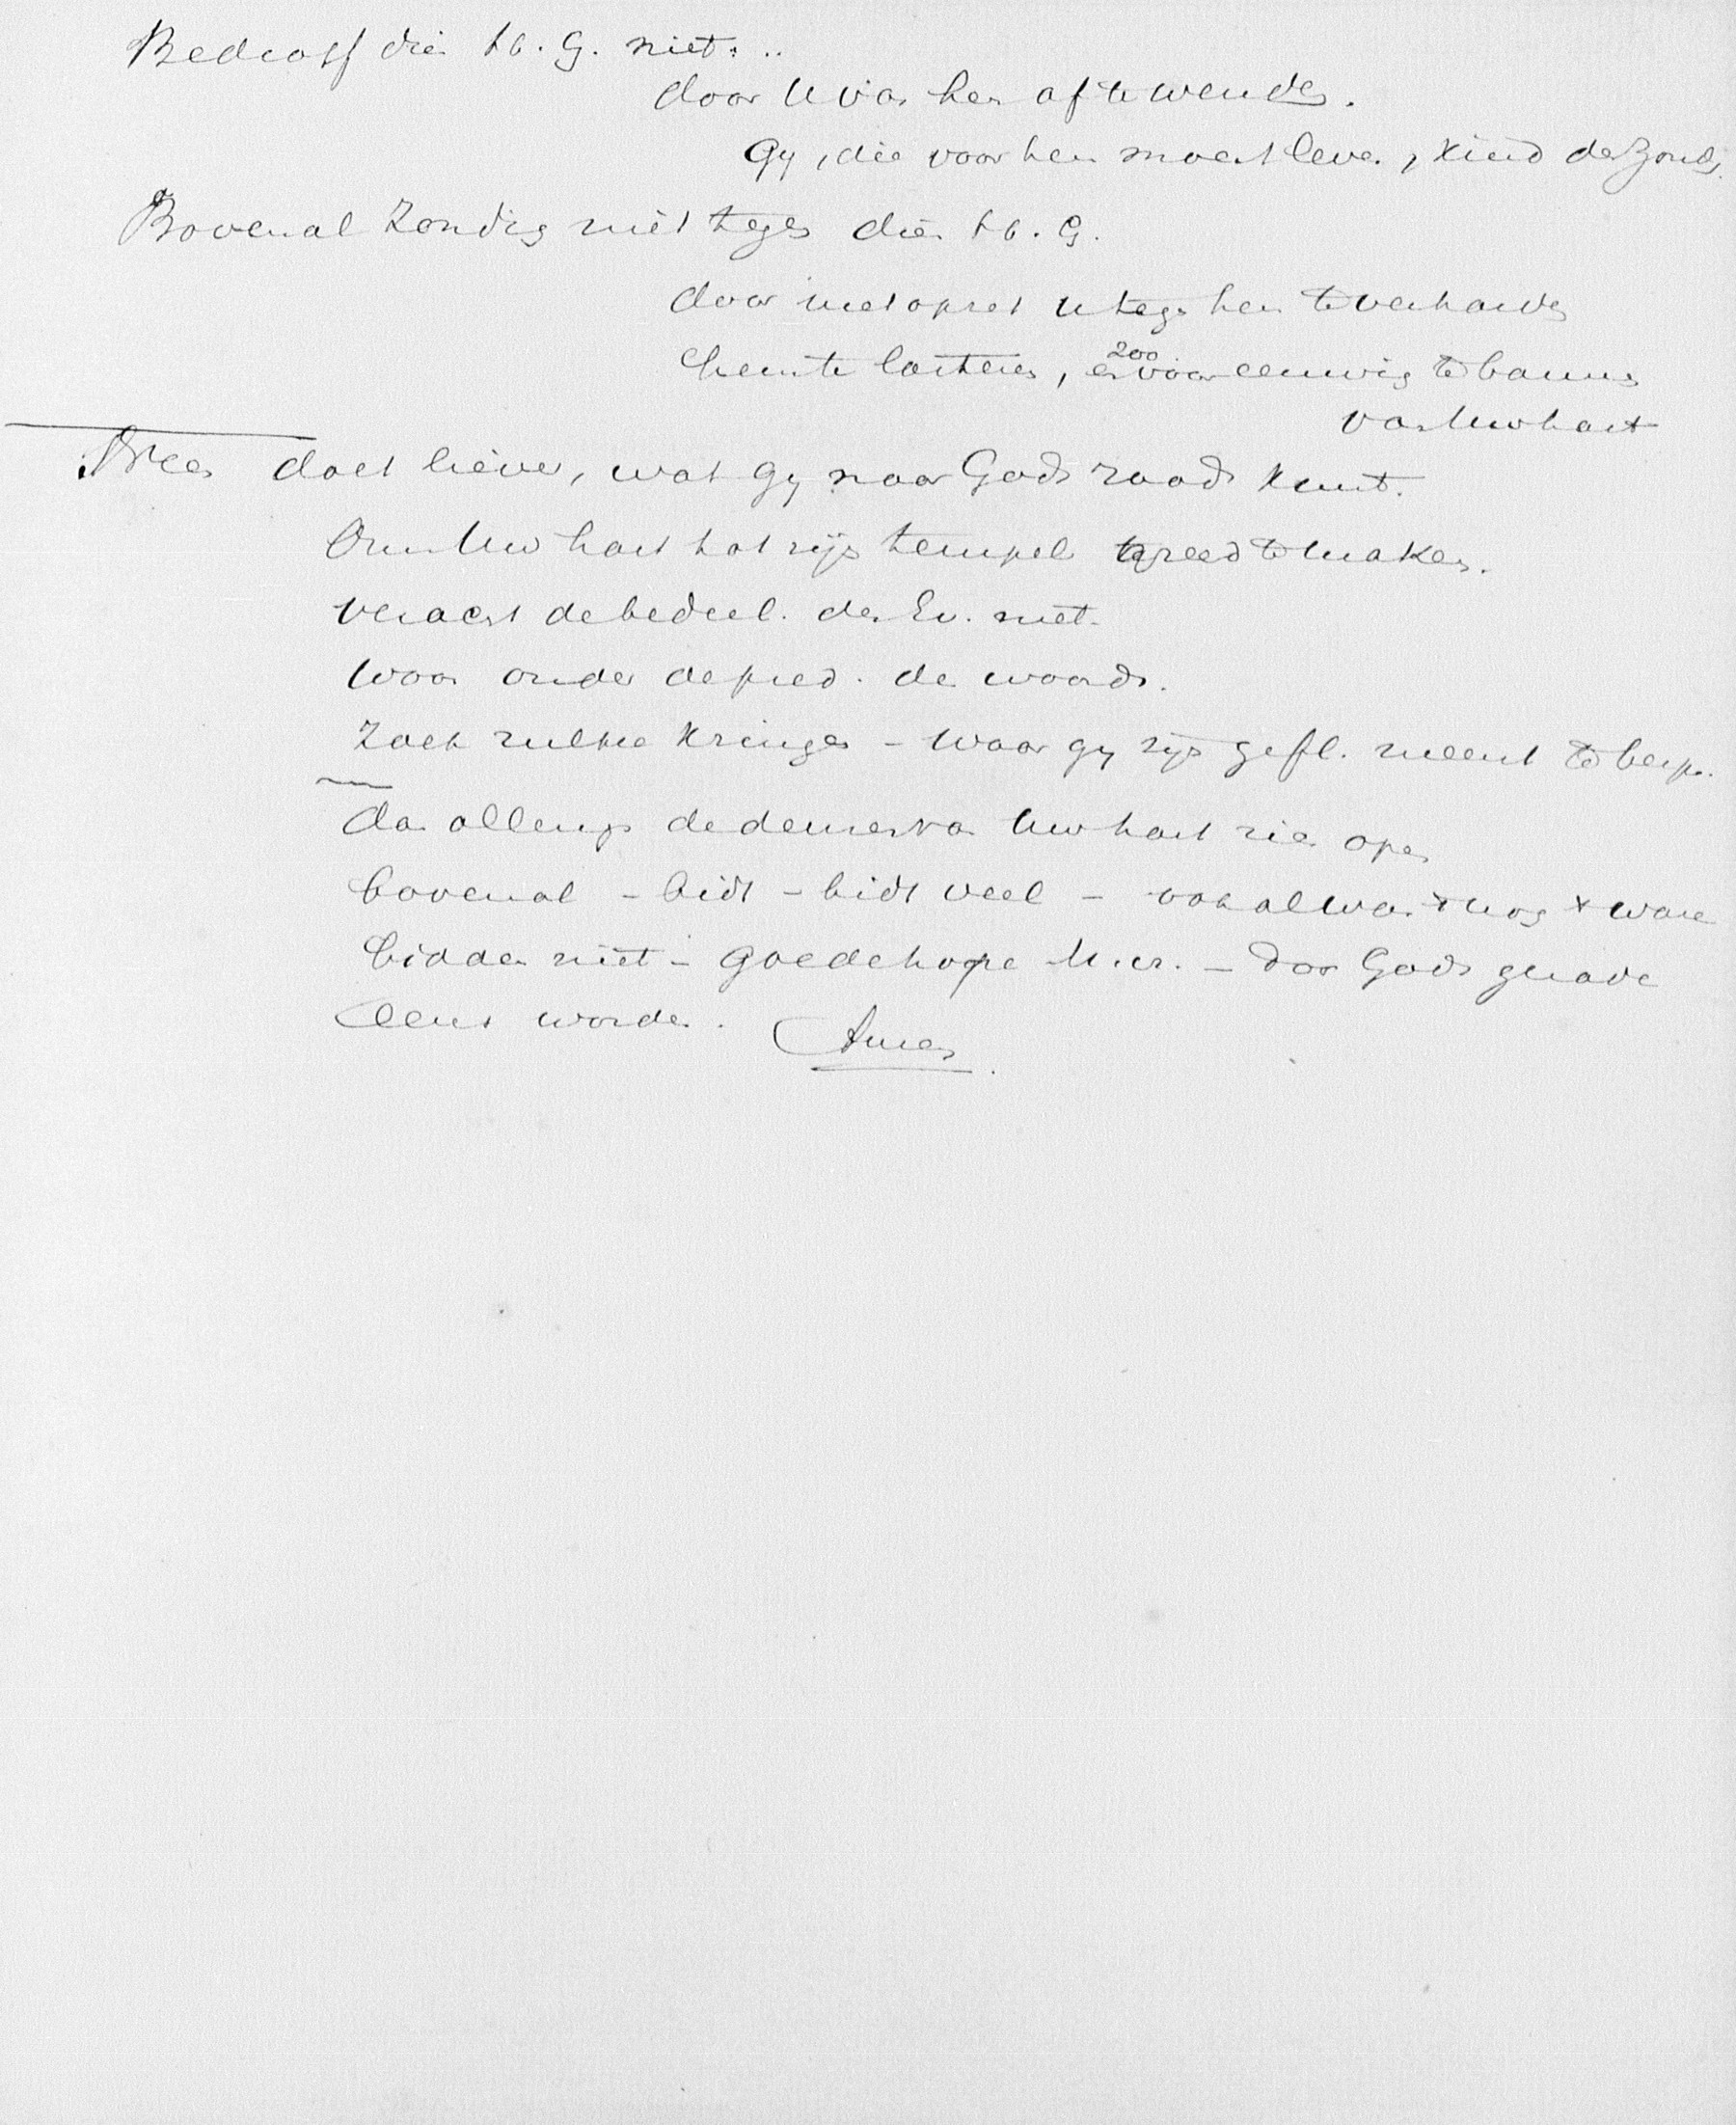 Bedroeft dien H. G. niet. ..
door U van hem af te wenden.
Gy, die voor hem moest leven, kind der zonde.
Bovenal zondig niet tegen dien H. G.
door met opzet U tegen hem te verharden
hem te lasteren, en zoo voor eeuwig te bannen
van Uw hart
Neen doet liever, wat gy naar Gods raad kunt.
Om Uw hart tot zijn tempel gereed te maken.
veracht de bedeel. des Ev. niet.
woon onder de pred. des woords.
Zoek zulke kringen - waar gy zijn gefl. meent te
dan allengs de deuren van Uw hart zien open
bovenal - bidt - bidt veel - ook al was het nog het ware
bidden niet - goede hope M. er. - door Gods genade
eens worden. Amen